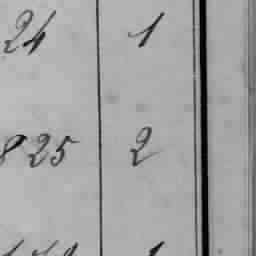 24 1
825 2